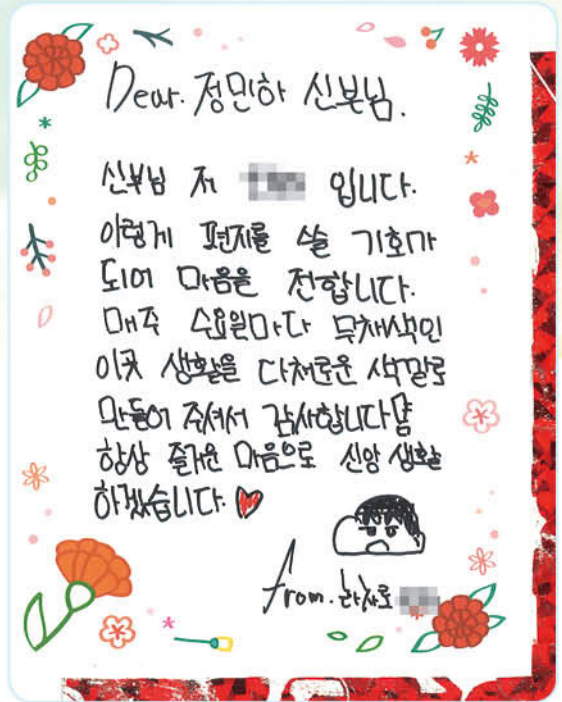 Dear. 정민하 신부님.
신부님 저 입니다.
이렇게 편지를 쓸 기회가
되어 마음을 전합니다.
매주 수요일마다 무채색인
이곳 생활을 다채로운 색깔로
만들어 주셔서 감사합니다
항상 즐거운 마음으로 신앙 생활
하겠습니다.
from.